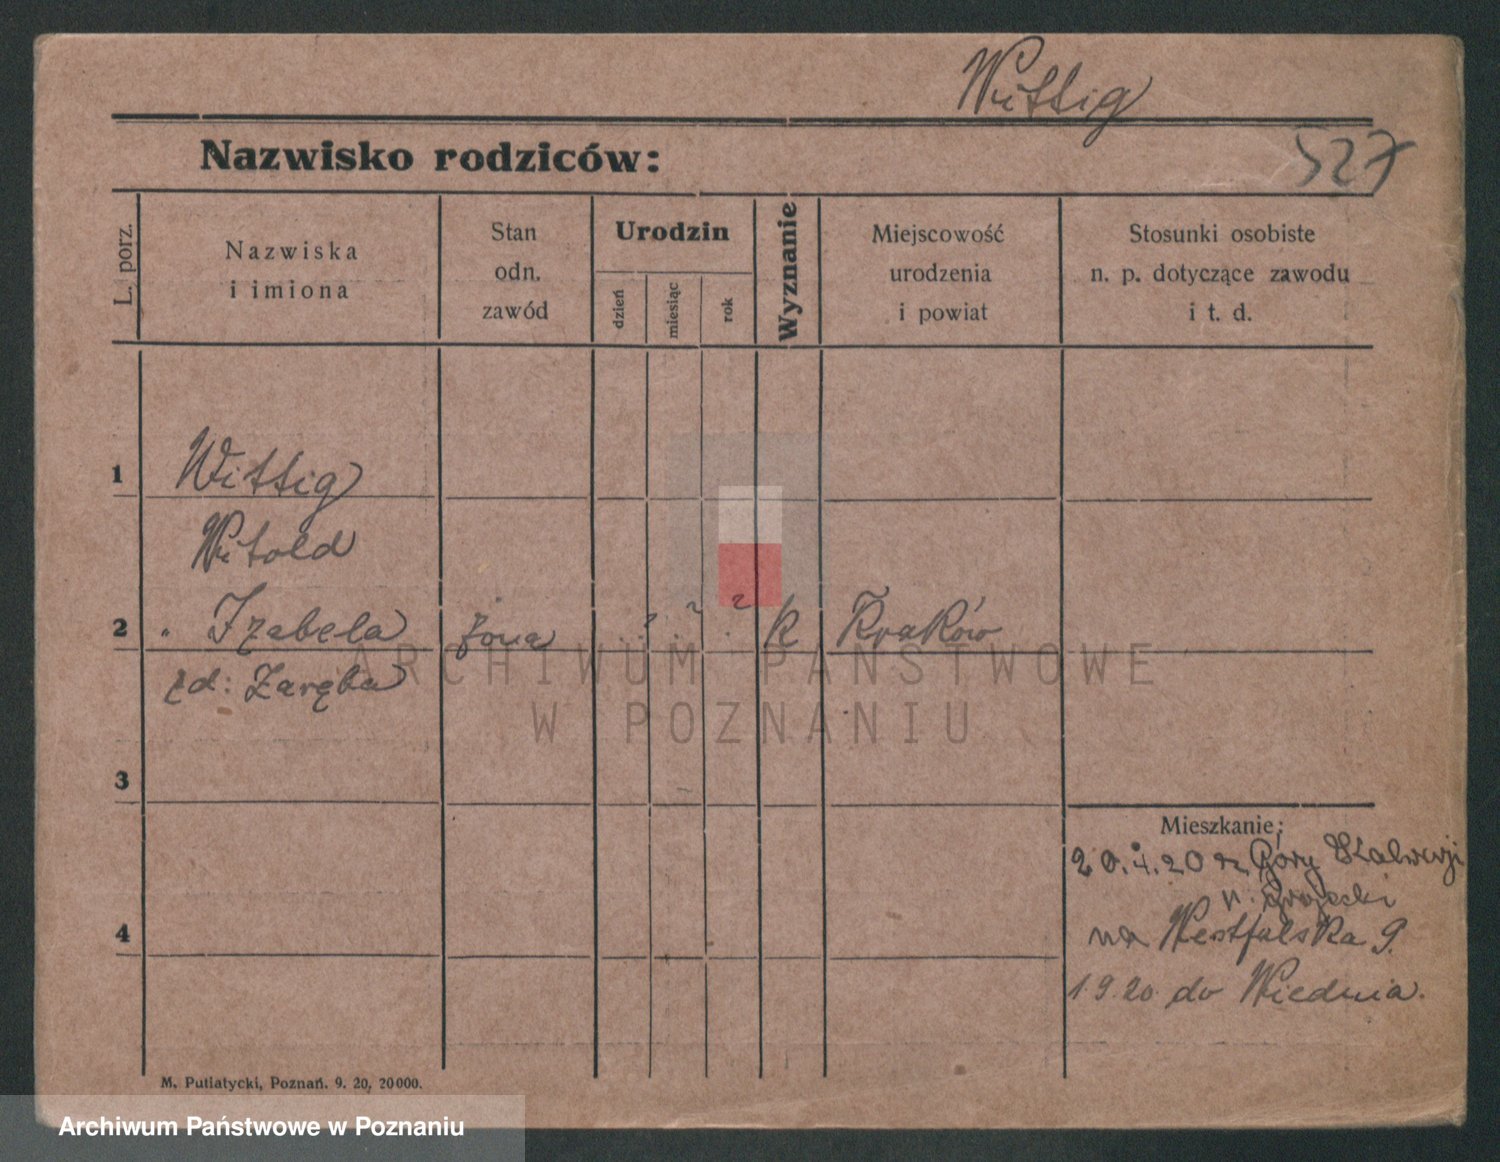 Wittig
527
Nazwisko rodziców:
L. porz.
Nazwiska
i imiona
Stan
odn.
zawód
Urodzin
dzień
miesiąc
rok
Wyznanie
Miejscowość
urodzenia
i powiat
Stosunki osobiste
n. p. dotyczące zawodu
i t. d.
1 Wittig
Witold
2 " Izabela żona ? ? ? k Kraków
zd: Zaręba
3
4
Mieszkanie;
20. 20 z Góry Kalwarji
p. grójecki
na Westfalska 9.
1.9.20 do Wiednia.
M. Putiatycki, Poznań. 9. 20, 20000.
ARCHIWUM PAŃSTWOWE
W POZNANIU
Archiwum Państwowe w Poznaniu